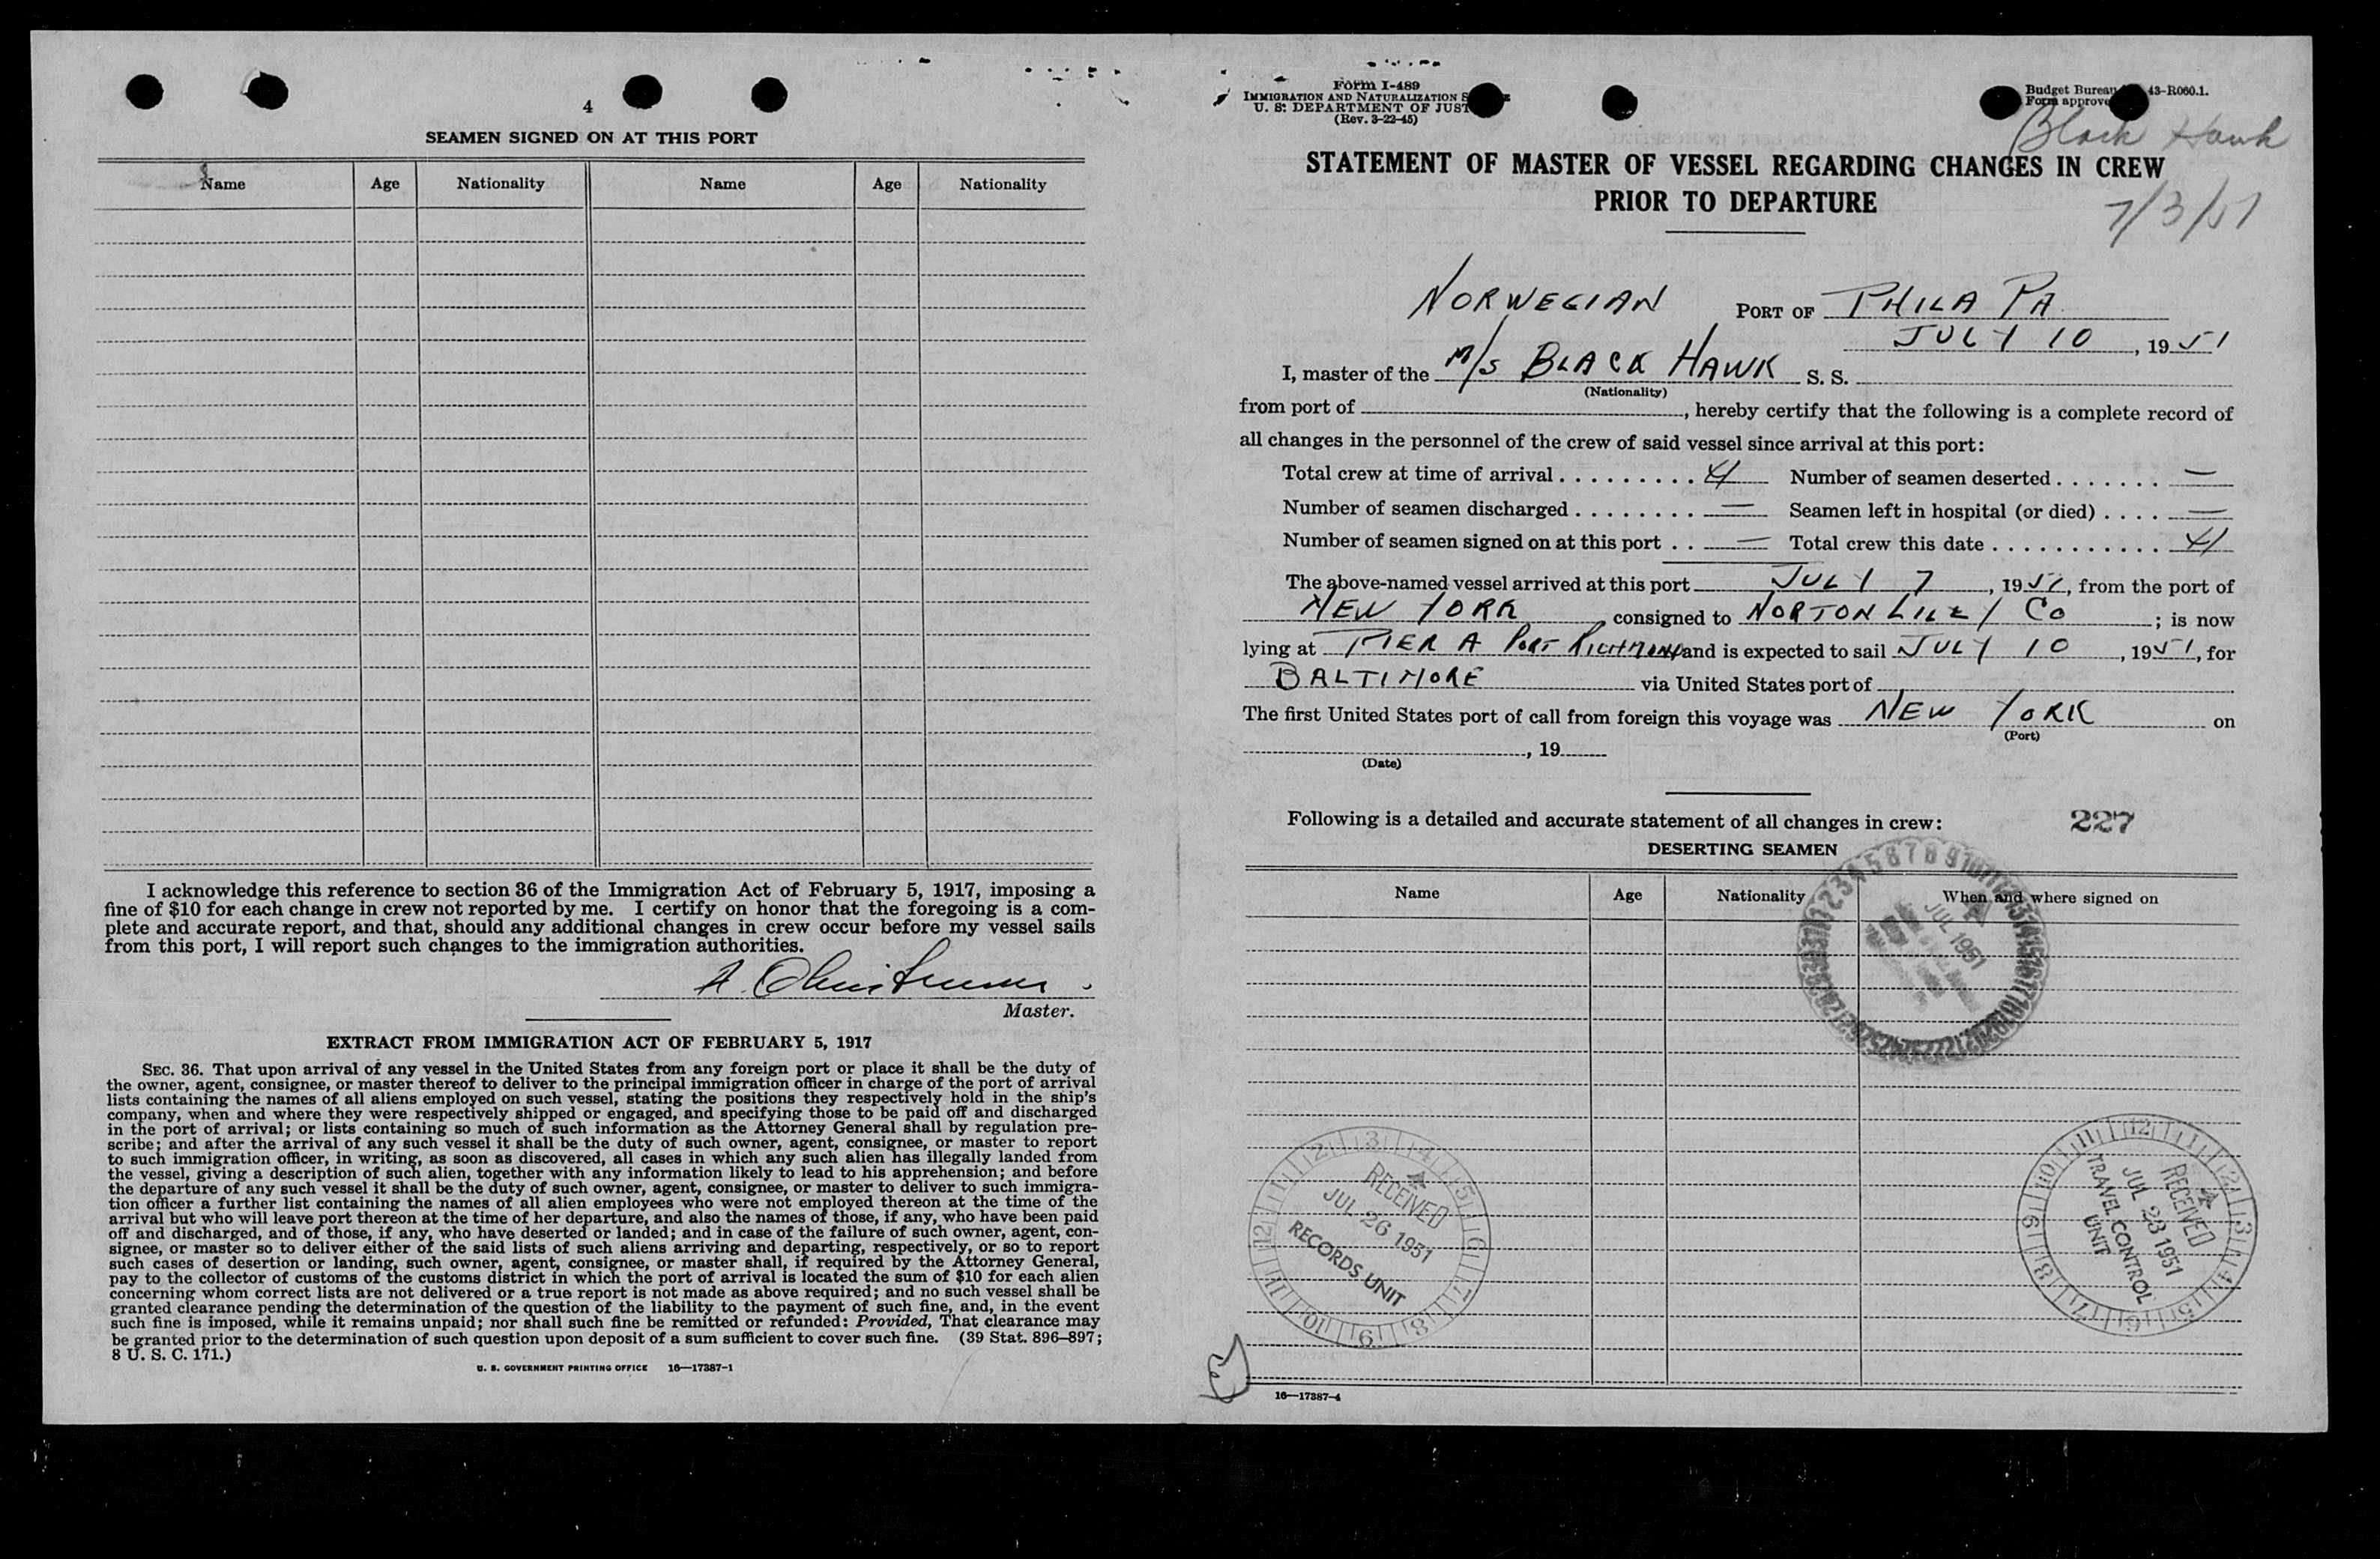 4
SEAMEN SIGNED ON AT THIS PORT
Name Age Nationality Name Age Nationality
I acknowledge this reference to section 36 of the Immigration Act of February 5, 1917, imposing a
fine of $10 for each change in crew not reported by me. I certify on honor that the foregoing is a com-
plete and accurate report, and that, should any additional changes in crew occur before my vessel sails
from this port, I will report such changes to the immigration authorities.
Master.
EXTRACT FROM IMMIGRATION ACT OF FEBRUARY 5, 1917
SEC. 36. That upon arrival of any vessel in the United States from any foreign port or place it shall be the duty of
the owner, agent, consignee, or master thereof to deliver to the principal immigration officer in charge of the port of arrival
lists containing the names of all aliens employed on such vessel, stating the positions they respectively hold in the ship's
company, when and where they were respectively shipped or engaged, and specifying those to be paid off and discharged
in the port of arrival; or lists containing so much of such information as the Attorney General shall by regulation pre-
scribe; and after the arrival of any such vessel it shall be the duty of such owner, agent, consignee, or master to report
to such immigration officer, in writing, as soon as discovered, all cases in which any such alien has illegally landed from
the vessel, giving a description of such alien, together with any information likely to lead to his apprehension; and before
the departure of any such vessel it shall be the duty of such owner, agent, consignee, or master to deliver to such immigra-
tion officer a further list containing the names of all alien employees who were not employed thereon at the time of the
arrival but who will leave port thereon at the time of her departure, and also the names of those, if any, who have been paid
off and discharged, and of those, if any, who have deserted or landed; and in case of the failure of such owner, agent, con-
signee, or master so to deliver either of the said lists of such aliens arriving and departing, respectively, or so to report
such cases of desertion or landing, such owner, agent, consignee, or master shall, if required by the Attorney General,
pay to the collector of customs of the customs district in which the port of arrival is located the sum of $10 for each alien
concerning whom correct lists are not delivered or a true report is not made as above required; and no such vessel shall be
granted clearance pending the determination of the question of the liability to the payment of such fine, and, in the event
such fine is imposed, while it remains unpaid; nor shall such fine be remitted or refunded: Provided, That clearance may
be granted prior to the determination of such question upon deposit of a sum sufficient to cover such fine. (39 Stat. 896–897;
8 U. S. C. 171.)
U. S. GOVERNMENT PRINTING OFFICE 16—17387-1
Form I-489
IMMIGRATION AND NATURALIZATION
U. S. DEPARTMENT OF JUST
(Rev. 3-22-45)
Budget Bureau 43-R060.1.
Form approve
Black Hawk
7/3/51
STATEMENT OF MASTER OF VESSEL REGARDING CHANGES IN CREW
PRIOR TO DEPARTURE
NORWEGIAN PORT OF PHILA PA
JULY 10, 1951
I, master of the M/S BLACK HAWK S. S.
(Nationality)
from port of , hereby certify that the following is a complete record of
all changes in the personnel of the crew of said vessel since arrival at this port:
Total crew at time of arrival . . . . . . . . . 41 Number of seamen deserted . . . . . . . —
Number of seamen discharged . . . . . . . . — Seamen left in hospital (or died) . . . . —
Number of seamen signed on at this port . . — Total crew this date . . . . . . . . . . . . 41
The above-named vessel arrived at this port JULY 7, 1951, from the port of
NEW YORK consigned to NORTON LILLY CO ; is now
lying at PIER A PORT RICHMOND and is expected to sail JULY 10, 1951, for
BALTIMORE via United States port of
The first United States port of call from foreign this voyage was NEW YORK on
(Port)
, 19
(Date)
Following is a detailed and accurate statement of all changes in crew: 227
DESERTING SEAMEN
Name Age Nationality When and where signed on
JUL 1951
RECEIVED
JUL 26 1951
RECORDS UNIT
RECEIVED
JUL 23 1951
TRAVEL CONTROL
UNIT
16—17387-4